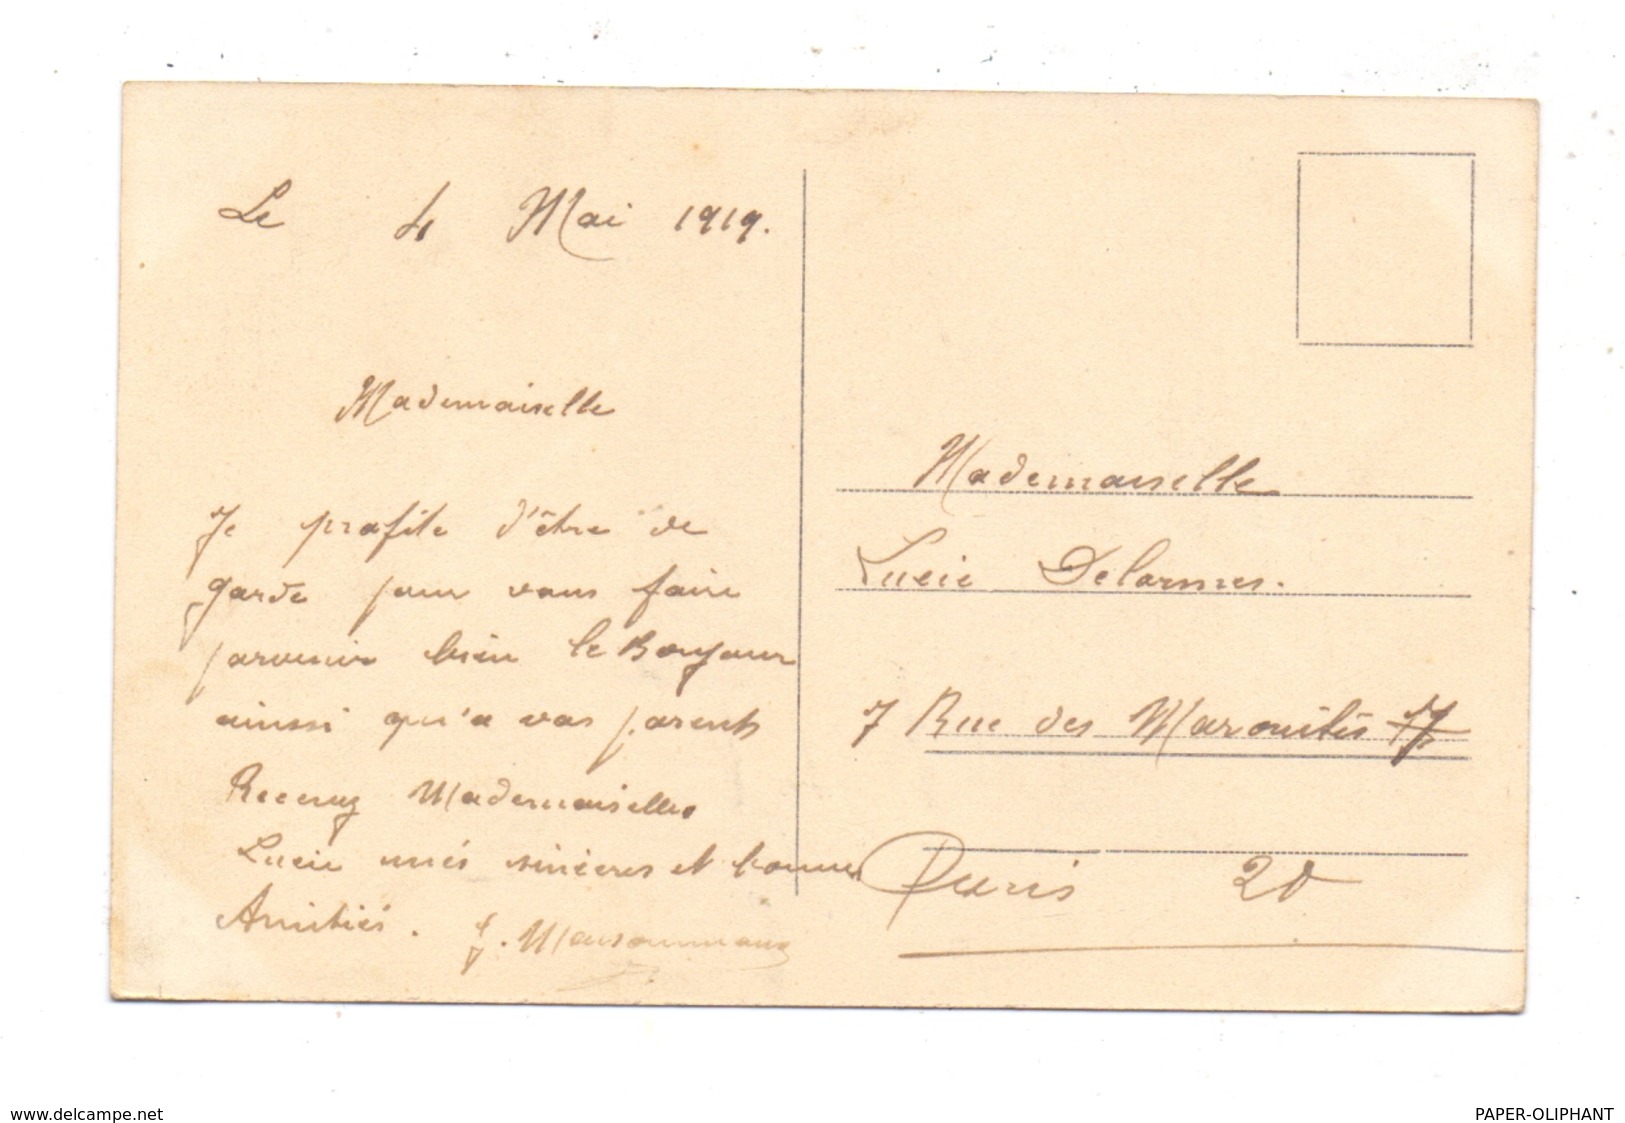 Le 4 Mai 1919.
Mademoiselle
Je profite d'être de
garde pour vous faire
parvenir bien le Bonjour
ainsi qu'a vos parents
Recevez Mademoiselle
Lucie mes sincères et bonnes
Amitiés. J.
Mademoiselle
Lucie Delarmes.
7 Rue des Maronites
Paris 20
www.delcampe.net
PAPER-OLIPHANT